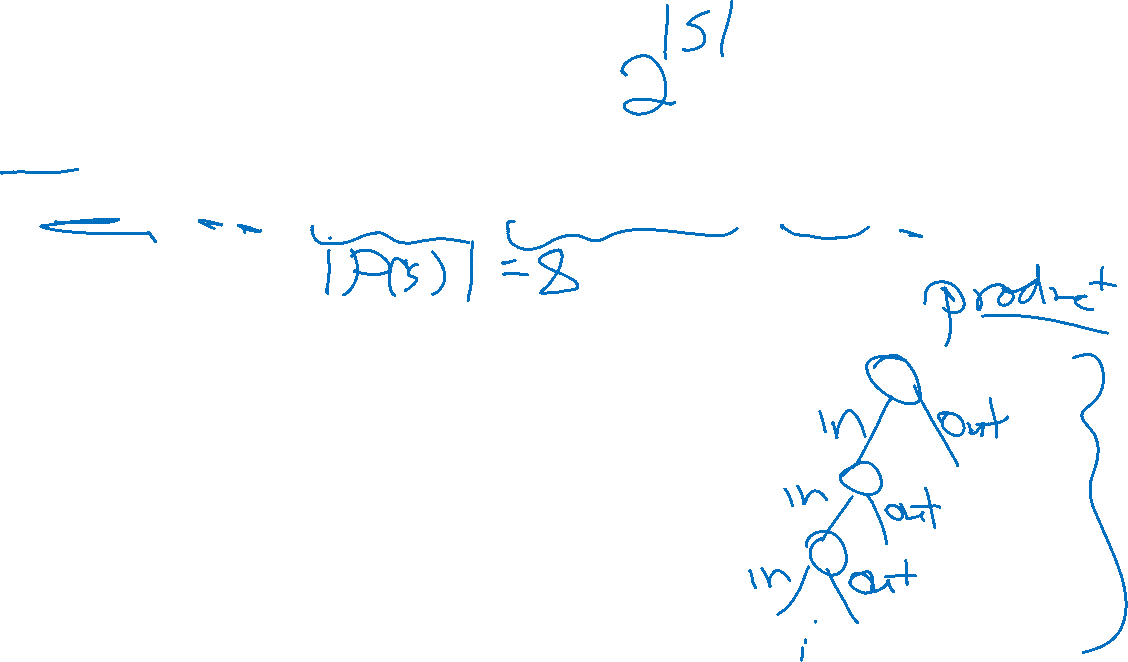 2^|S|
|P(S)| = 8
product
in out
in out
in out